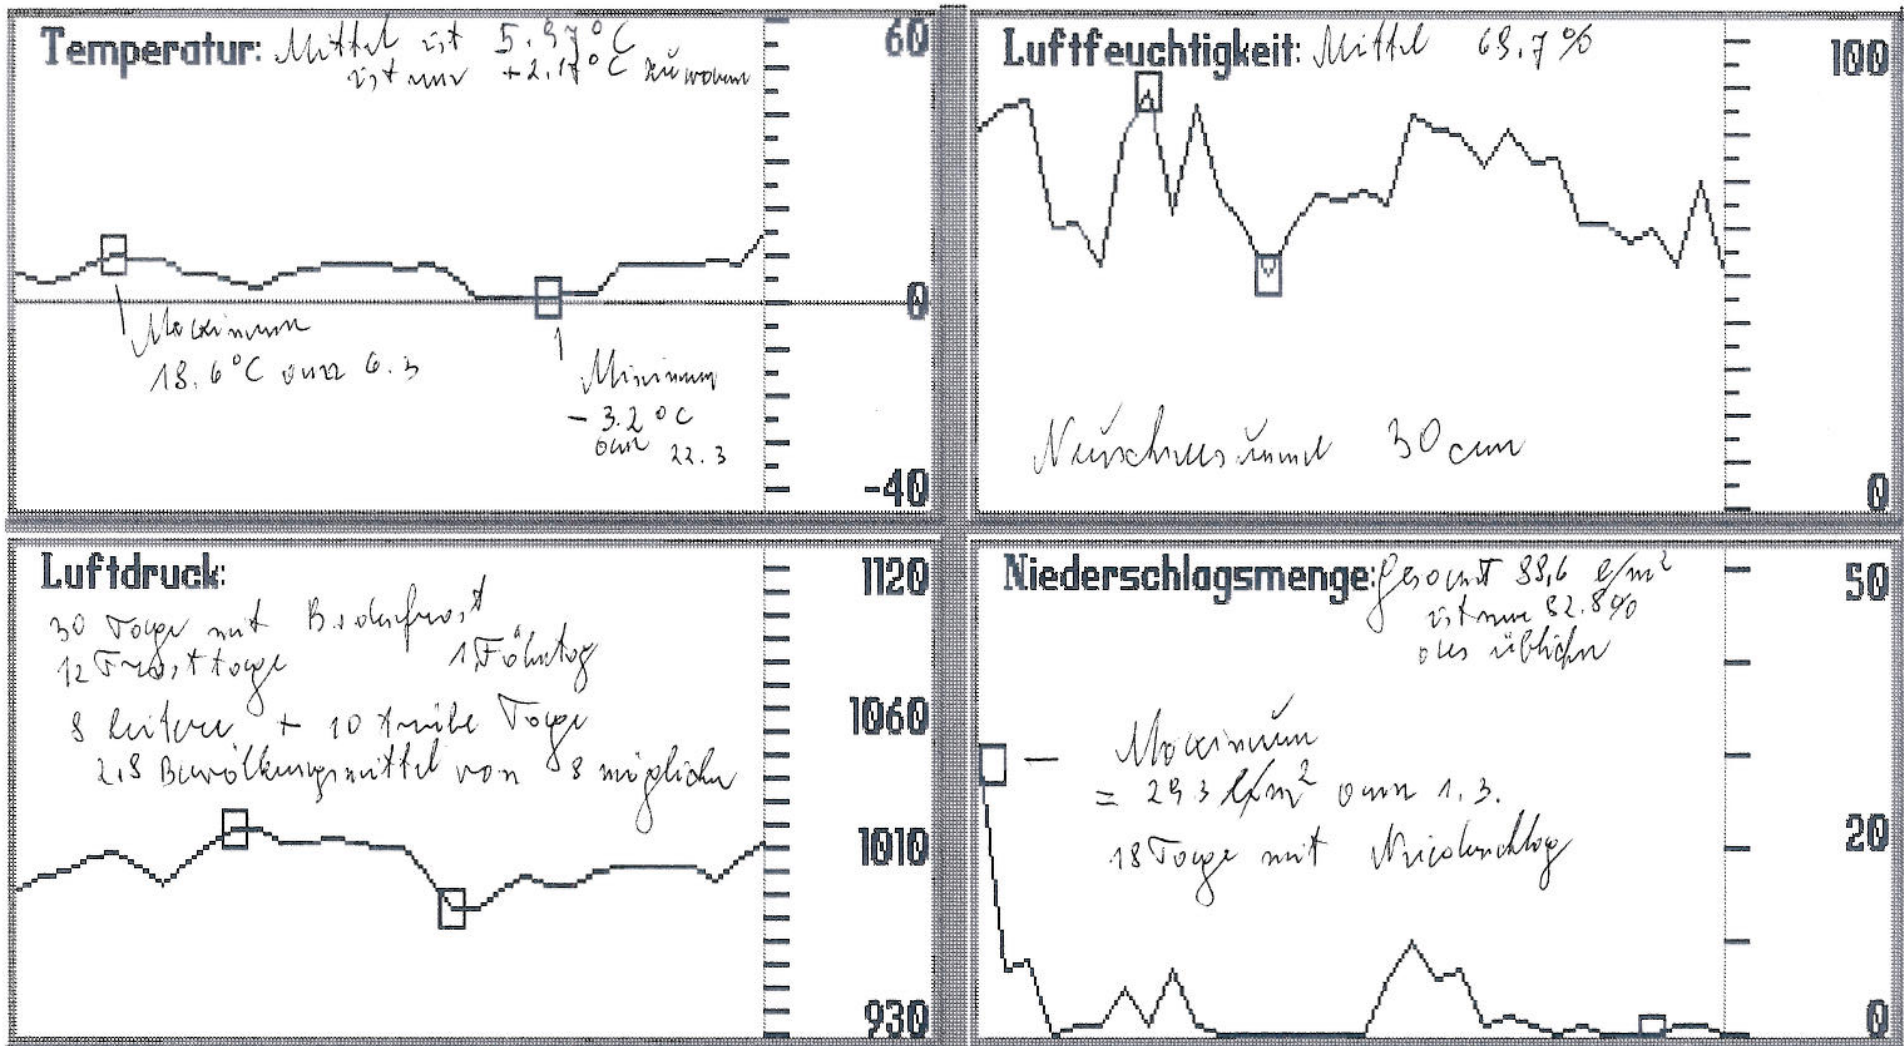 Temperatur: Mittel ist 5.97°C
ist nur +2.17°C zu warm
60
Maximum
18.6°C am 6.3
0
Minimum
- 3.2°C
am 22.3
-40
Luftfeuchtigkeit: Mittel 69.7%
100
Neuschneesumme 30 cm
0
Luftdruck:
1120
30 Tage mit Bodenfrost
12 Frosttage 1 Föhntag
heitere + 10 trübe Tage
1060
Bewölkungsmittel von 8 möglichen
1010
930
Niederschlagsmenge: gesamt l/m²
50
ist nur
des üblichen
Maximum
= 29.3 l/m² am 1.3.
20
18 Tage mit Niederschlag
0